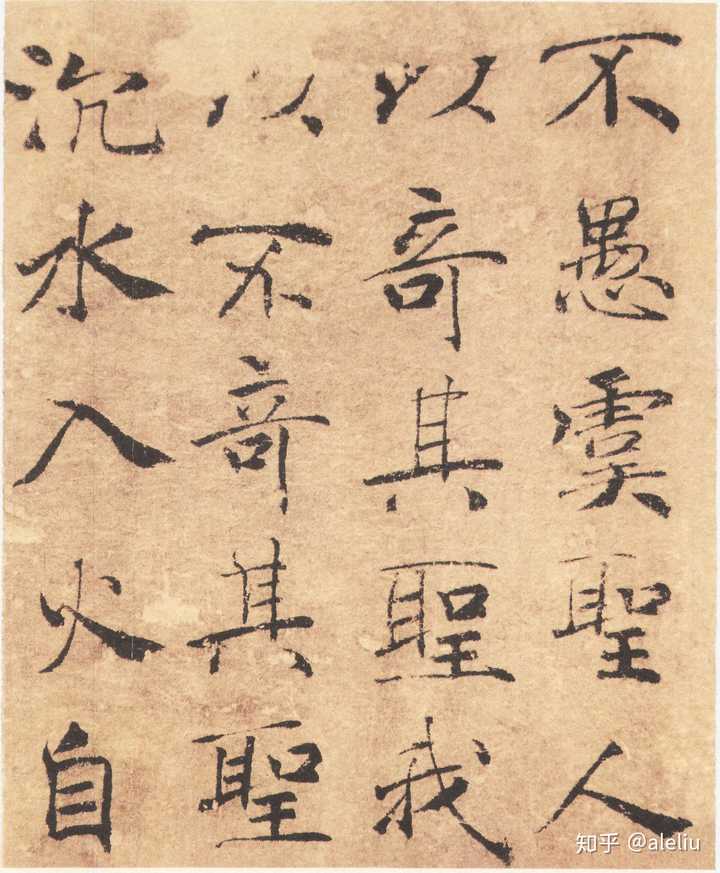 不愚虞聖人
以竒其聖我
以不竒其聖
沉水入火自
知乎 @aleliu